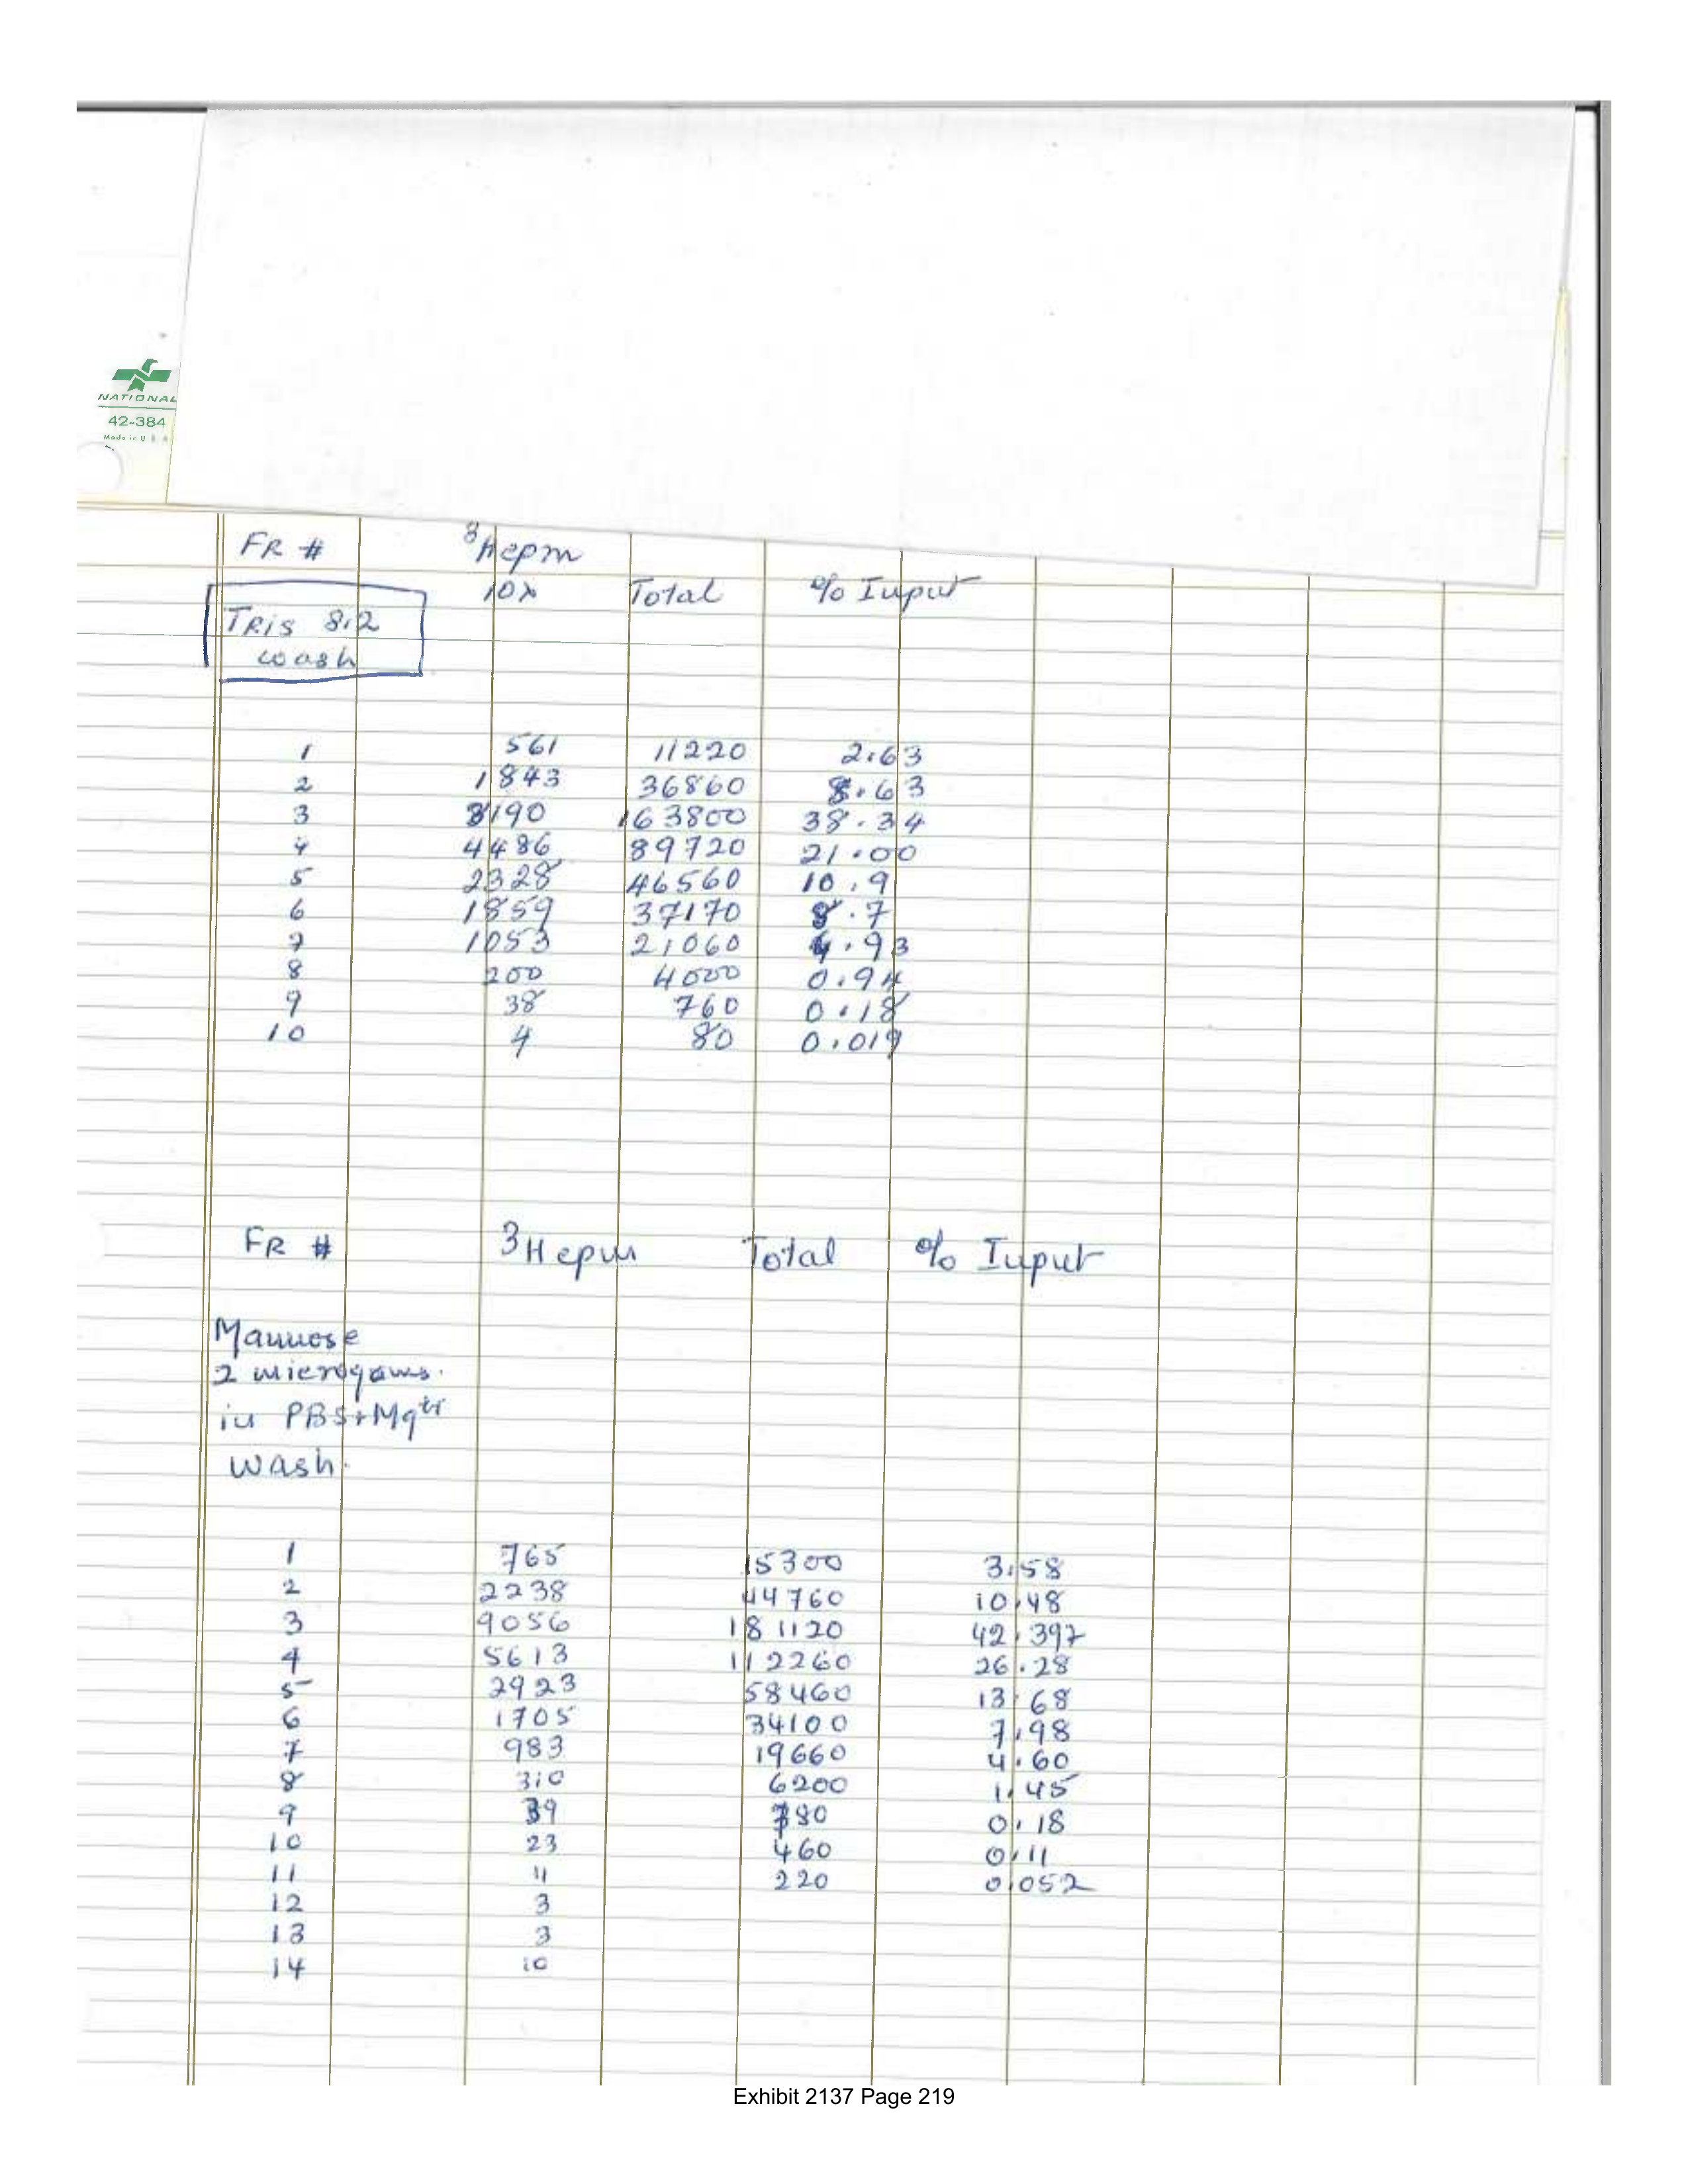 NATIONAL
42-384
Made in U S A
FR # 3Hcpm
10λ Total % Input
Tris 8.2
wash
1 561 11220 2.63
2 1843 36860 8.63
3 8190 163800 38.34
4 4486 89720 21.00
5 2328 46560 10.9
6 1859 37170 8.7
7 1053 21060 4.93
8 200 4000 0.94
9 38 760 0.18
10 4 80 0.019
FR # 3Hcpm Total % Input
Mannose
2 microgams.
in PBS+Mg++
wash.
1 765 15300 3.58
2 2238 44760 10.48
3 9056 181120 42.397
4 5613 112260 26.28
5 2923 58460 13.68
6 1705 34100 7.98
7 983 19660 4.60
8 310 6200 1.45
9 39 780 0.18
10 23 460 0.11
11 11 220 0.052
12 3
13 3
14 10
Exhibit 2137 Page 219